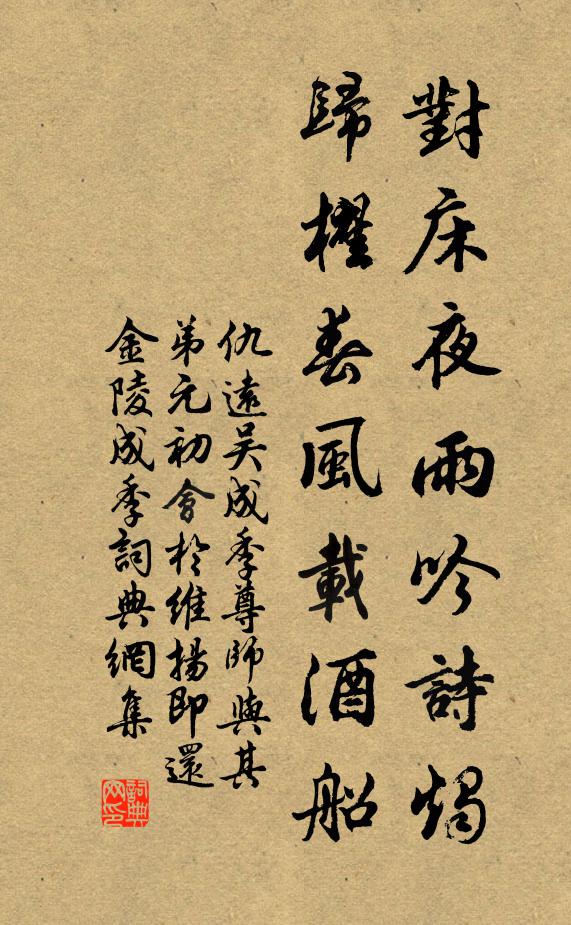 對床夜雨吟詩燭
歸櫂春風載酒船
仇遠吴成季尊師與其
弟元初會於維揚即還
金陵成季詞典網集
詞典
网印